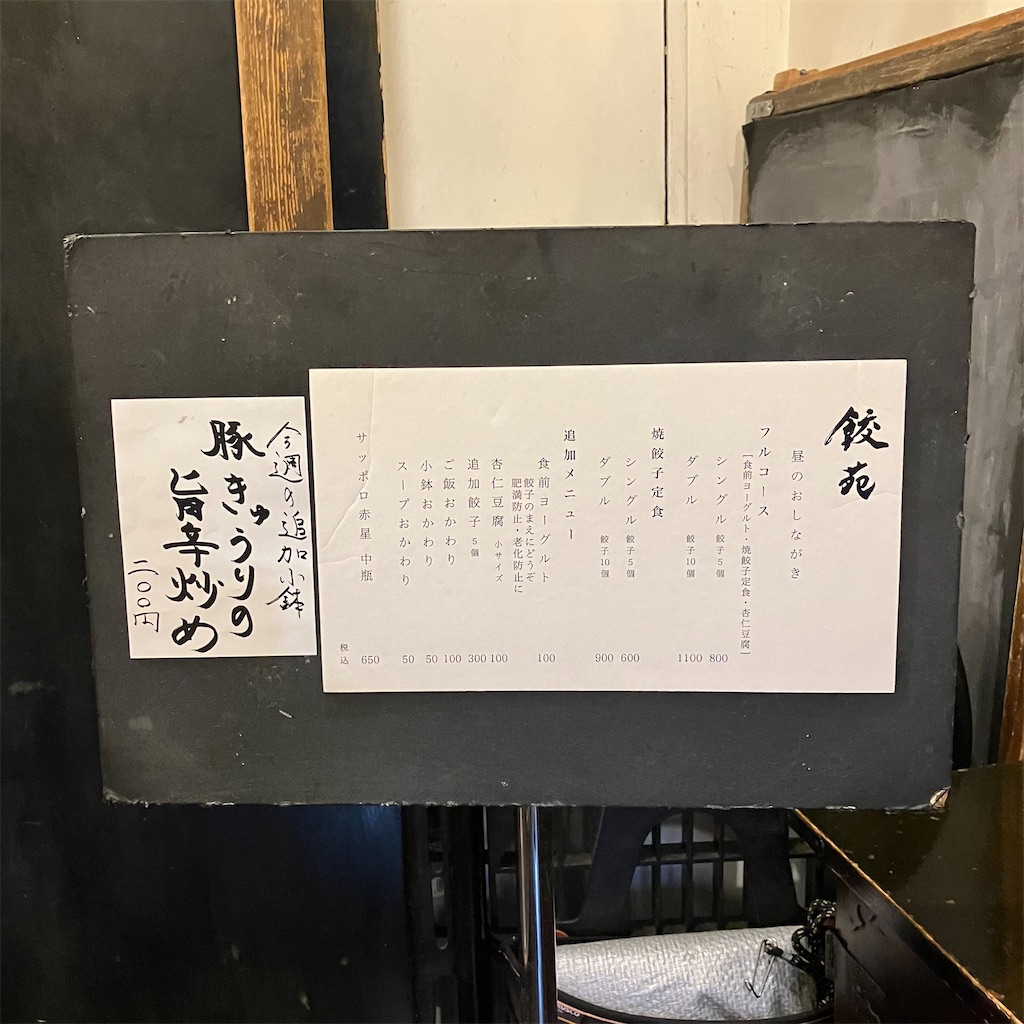 餃苑
昼のおしながき
フルコース
[食前ヨーグルト・焼餃子定食・杏仁豆腐]
シングル 餃子5個 800
ダブル 餃子10個 1100
焼餃子定食
シングル 餃子5個 600
ダブル 餃子10個 900
追加メニュー
食前ヨーグルト 100
餃子のまえにどうぞ
肥満防止・老化防止に
杏仁豆腐 小サイズ 100
追加餃子 5個 300
ご飯おかわり 100
小鉢おかわり 50
スープおかわり 50
サッポロ赤星 中瓶 650
税込
今週の追加小鉢
豚きゅうりの
旨辛炒め
二〇〇円